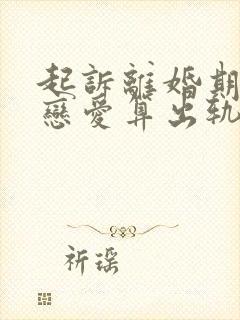 起訴離婚期
戀愛算出軌
祈瑤